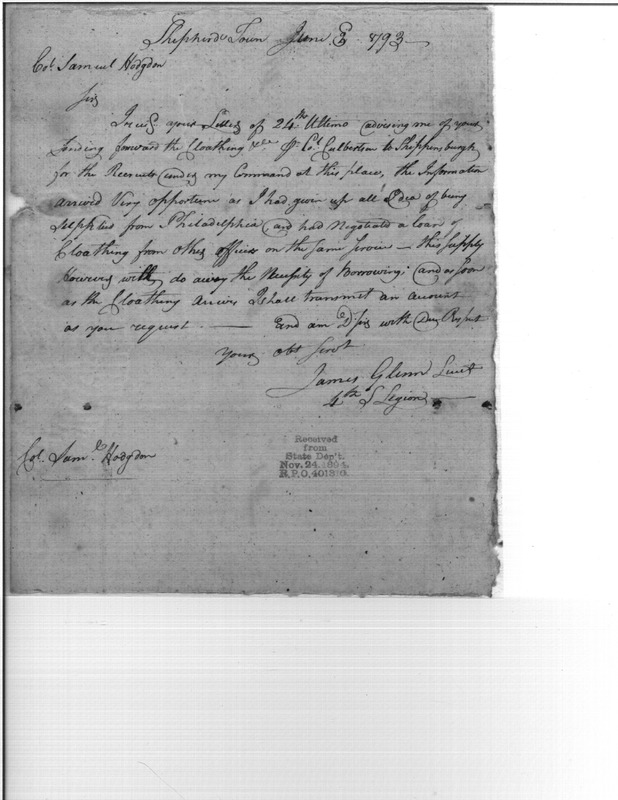 Shepherds Town June 2 1793
Col. Samuel Hodgdon
Sir
I recd. your Letter of 24th Ultemo advising me of your
sending forward the Cloathing &ca pr. Col. Culbertson to Shippensburgh
for the Recruits under my Command at this place, the Information
arrived Very opportune as I had given up all Idea of being
Supplied from Philadelphia, and had Negotiated a loan of
Cloathing from other officers on the same Service - this Supply
However will do away the Necessity of Borrowing; and as soon
as the Cloathing arrives I shall transmit an account
as you request. — And am Dr. Sir with Due Respect
your obt. Servt.
James Glenn Lieut
4th S Legion
Col. Saml. Hodgdon
Received
from
State Dep't.
Nov. 24. 1894.
R.P.O.